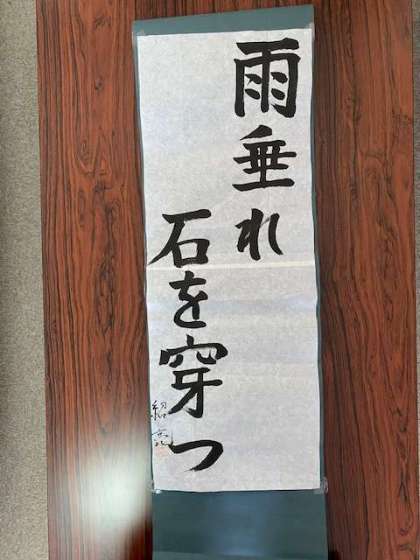 雨垂れ
石を穿つ